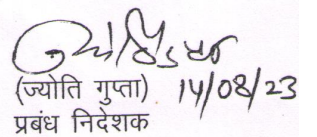 (ज्योति गुप्ता) 14/08/23
प्रबंध निदेशक